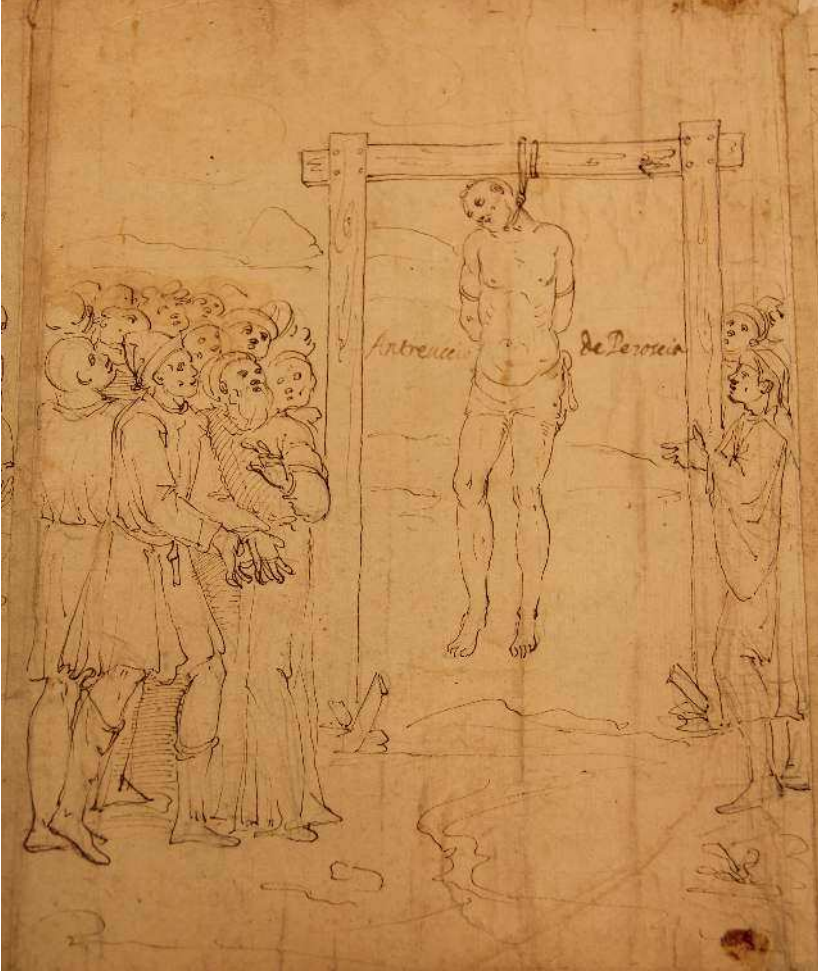 Antreuccio de Peroscia